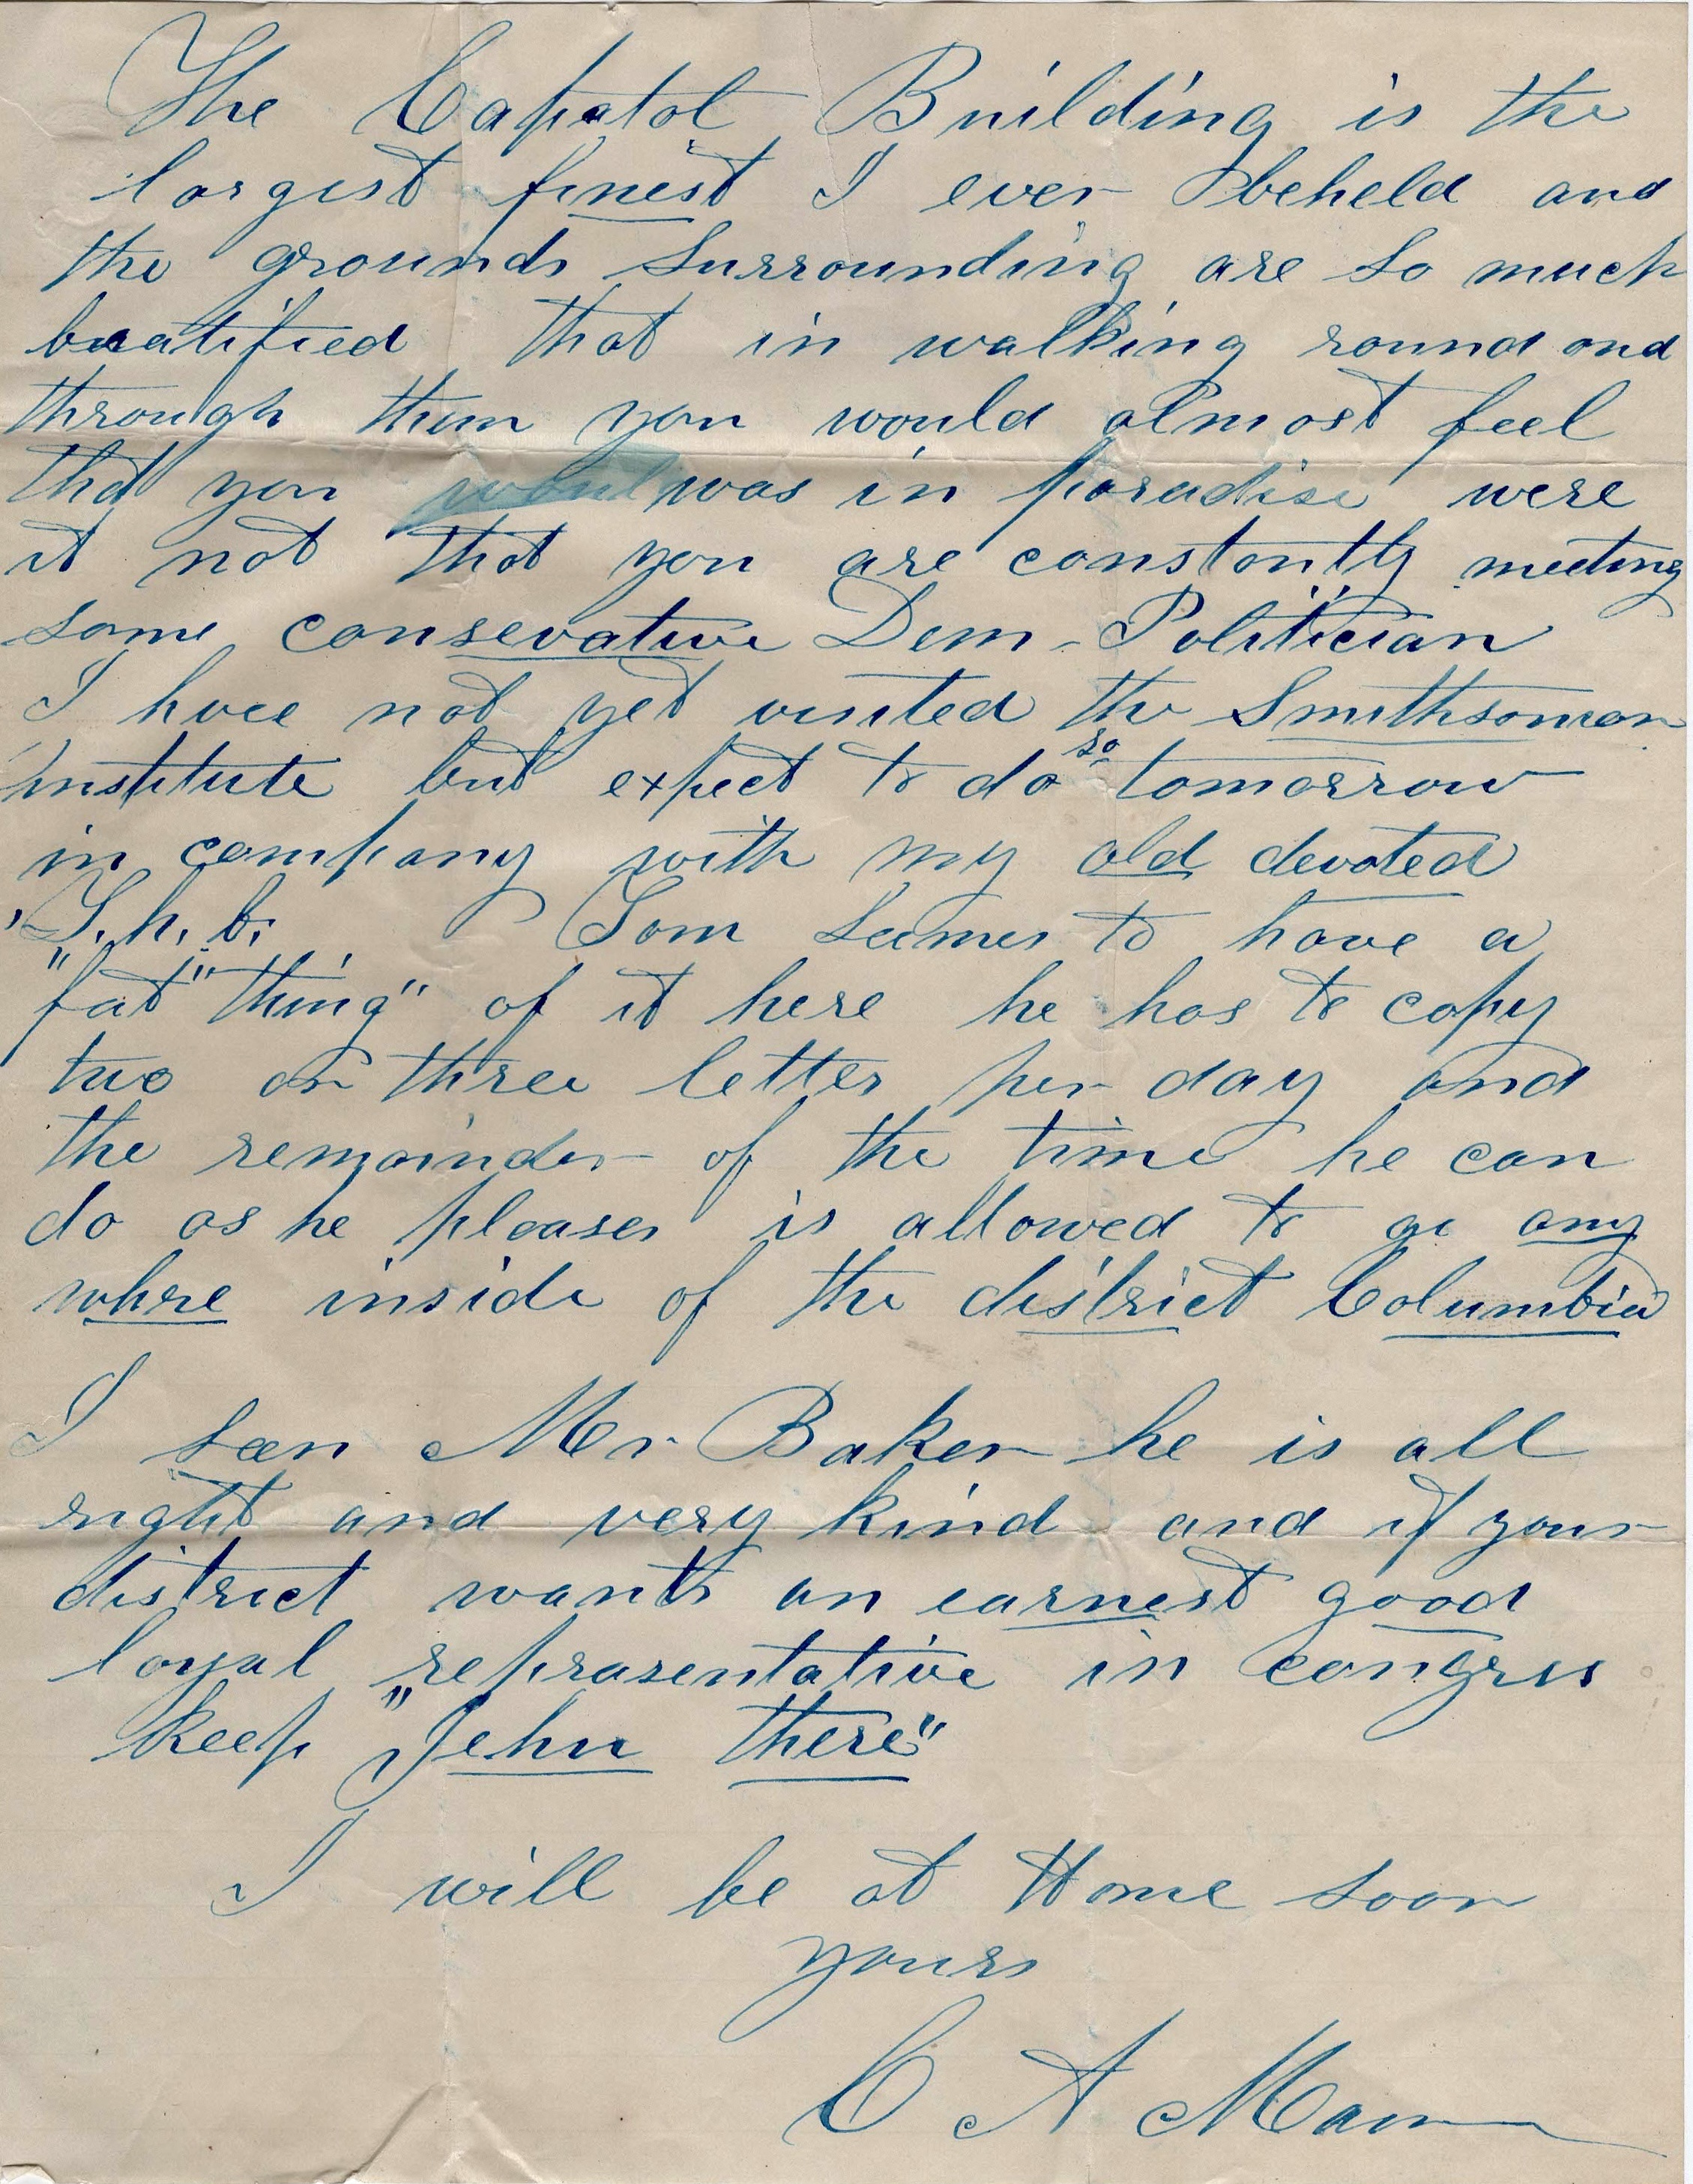 The Capatol Building is the
largest finest I ever beheld and
the grounds surrounding are so much
beatified that in walking round and
through them you would almost feel
that you was in paradise were
it not that you are constantly meeting
some consevative Dem - Politician
I have not yet visited the Smithsonian
institute but expect to do so tomorrow
in company with my old devoted
"T. h. b. Tom seemes to have a
"fat" thing" of it here he has to copy
two or three letter per day and
the remainder of the time he can
do as he pleases is allowed to go any
whre inside of the district Columbia
I seen Mr Baker he is all
right and very kind and if your
district wants an earnest good
loyal representative in congress
keep "Jehu there"
I will be at Home soon
yours
C A Mann